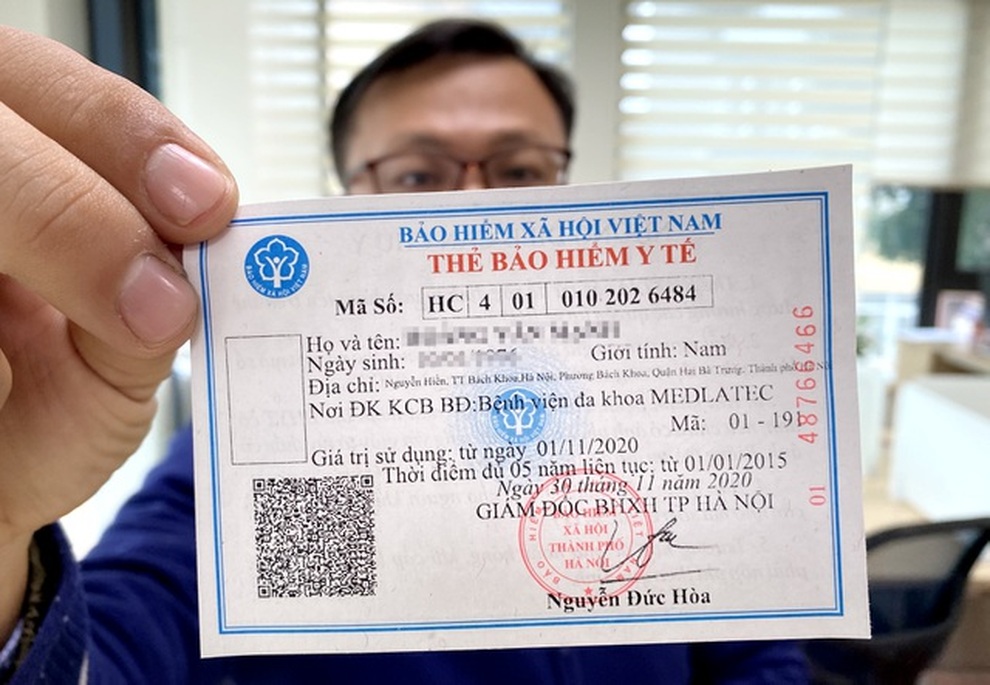 BẢO HIỂM XÃ HỘI VIỆT NAM
THẺ BẢO HIỂM Y TẾ
BẢO HIỂM XÃ HỘI VIỆT NAM
Mã Số: HC 4 01 010 202 6484
Họ và tên:
Ngày sinh: Giới tính: Nam
Địa chỉ: Nguyễn Hiền, TT Bách Khoa,Hà Nội, Phường Bách Khoa, Quận Hai Bà Trưng, Thành phố
Nơi ĐK KCB BĐ:Bệnh viện đa khoa MEDLATEC
Mã: 01 - 191
Giá trị sử dụng: từ ngày 01/11/2020
Thời điểm đủ 05 năm liên tục: từ 01/01/2015
Ngày 30 tháng 11 năm 2020
GIÁM ĐỐC BHXH TP HÀ NỘI
BẢO HIỂM
XÃ HỘI
THÀNH PHỐ
HÀ NỘI
Nguyễn Đức Hòa
01 48766466